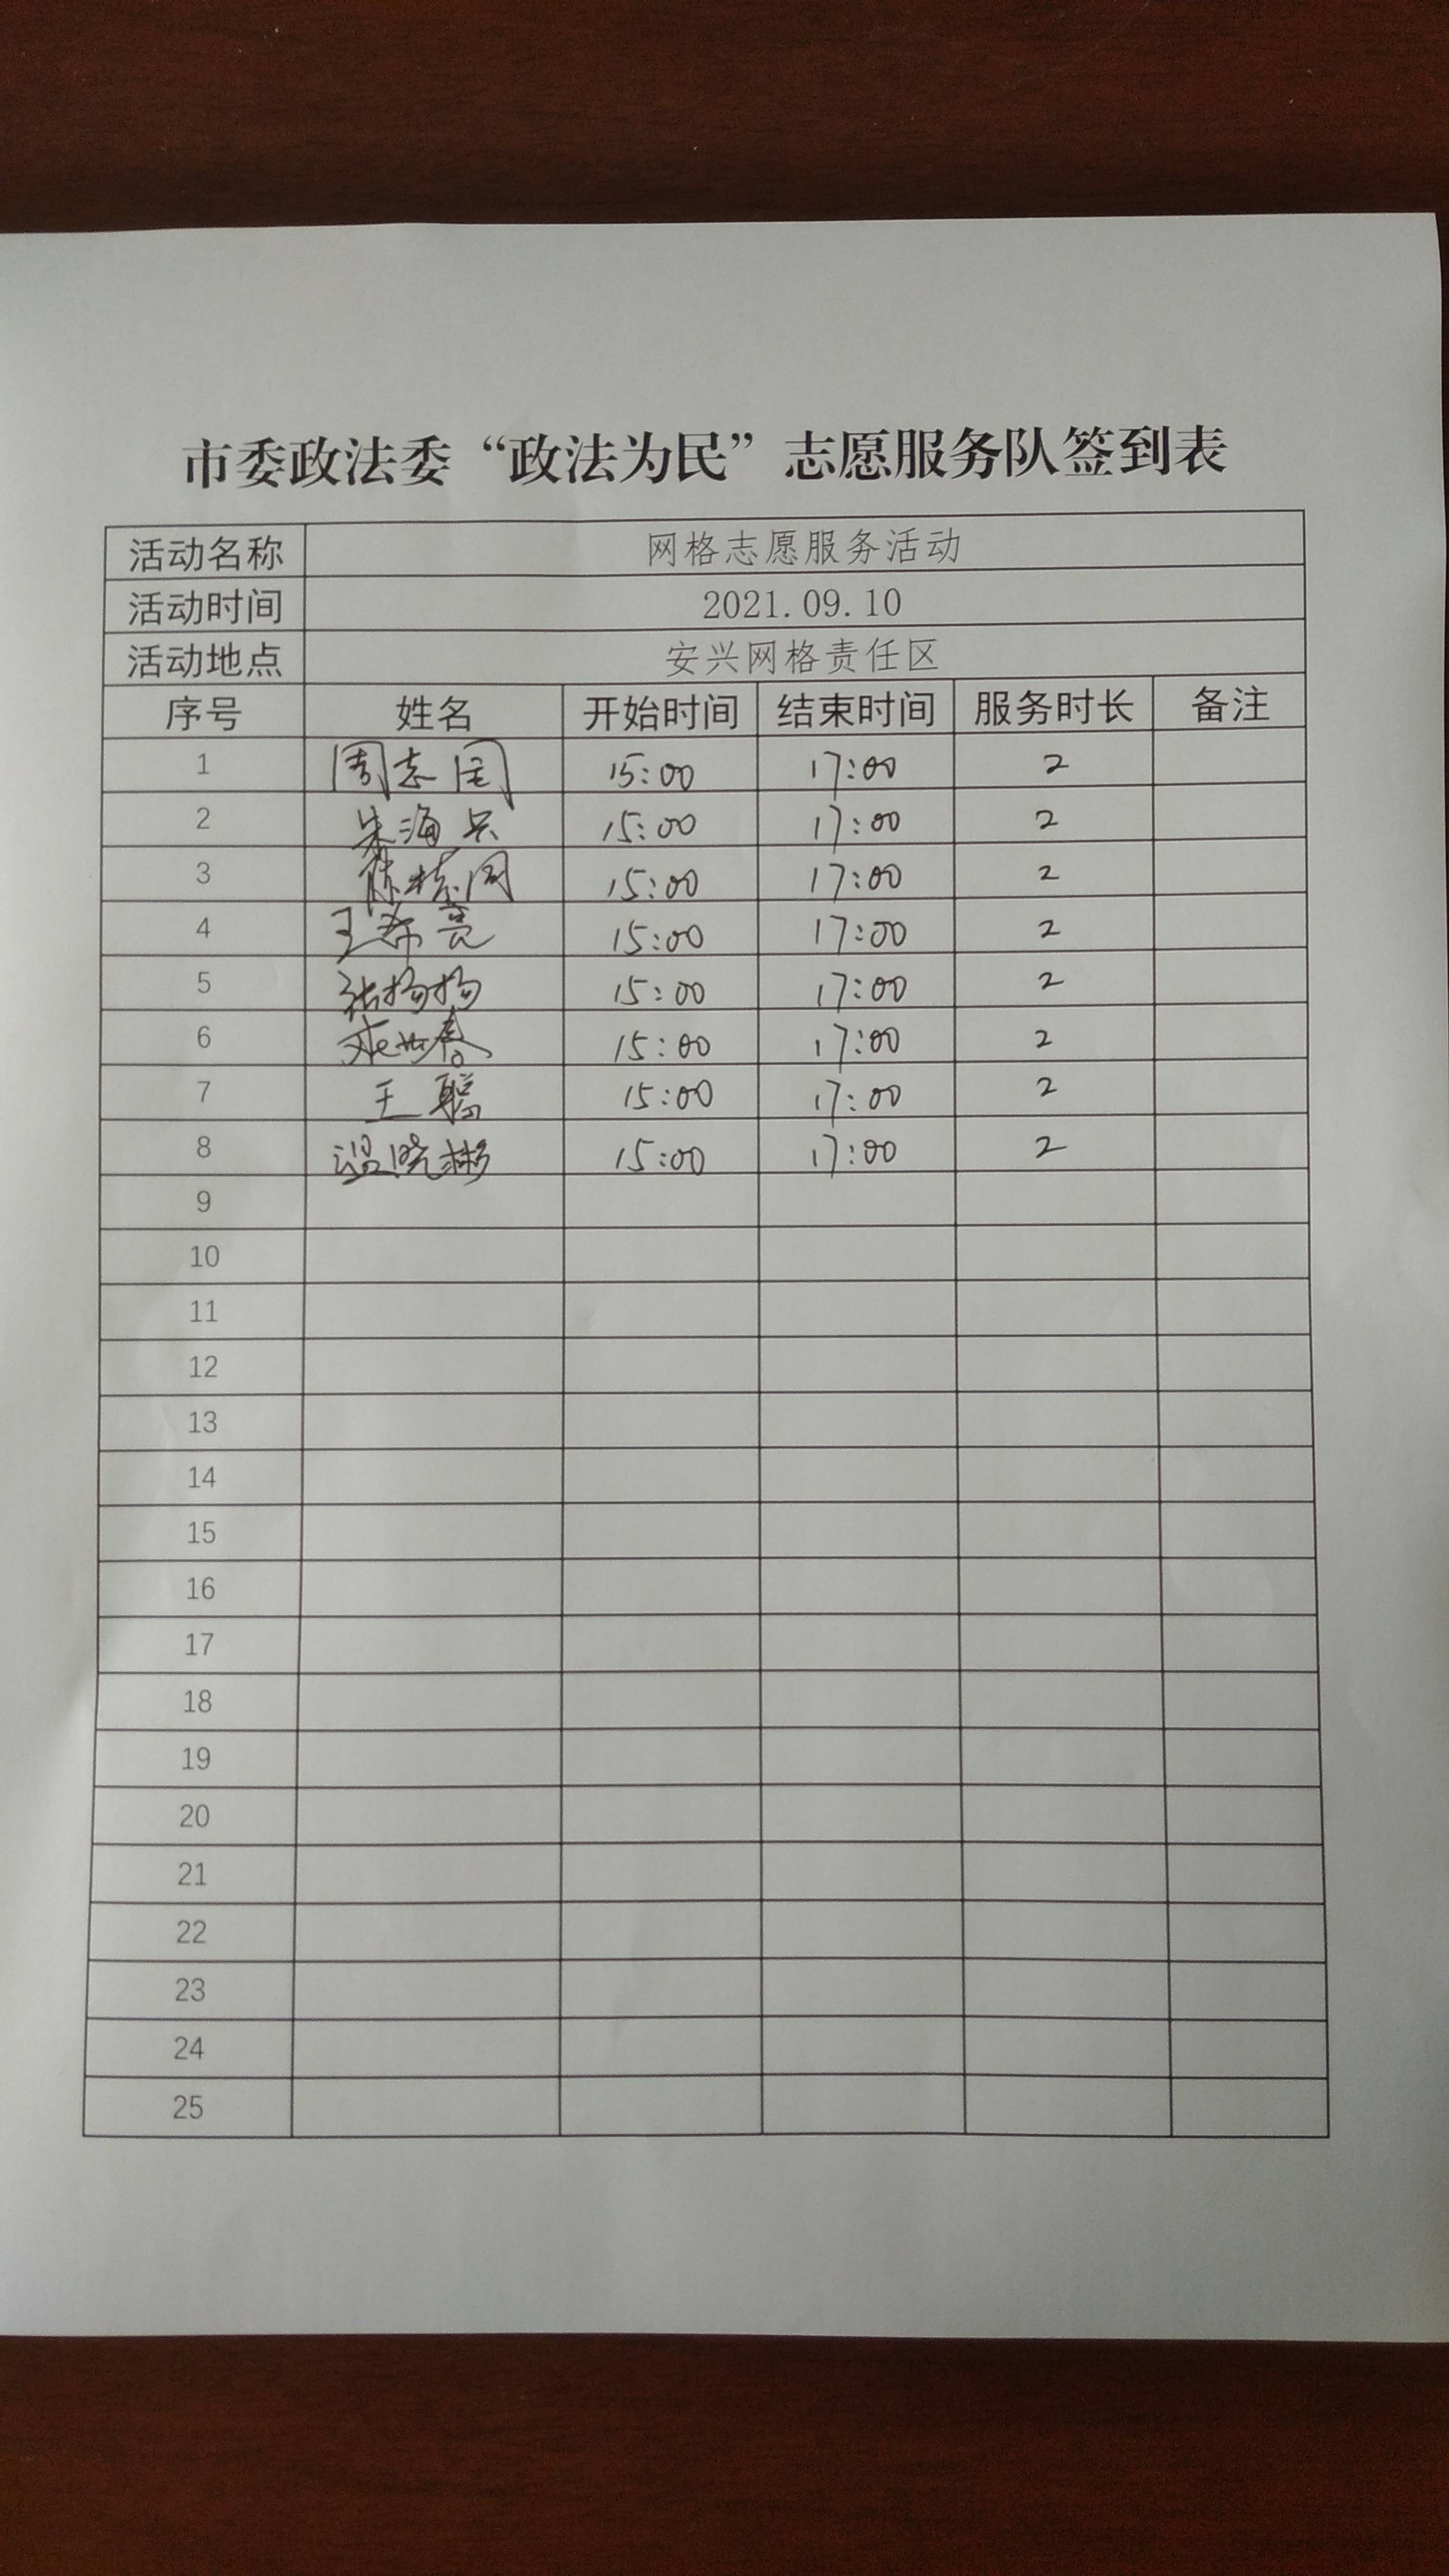 市委政法委“政法为民”志愿服务队签到表
活动名称 网格志愿服务活动
活动时间 2021.09.10
活动地点 安兴网格责任区
序号 姓名 开始时间 结束时间 服务时长 备注
1 周志国 15:00 17:00 2
2 朱海兵 15:00 17:00 2
3 15:00 17:00 2
4 王希亮 15:00 17:00 2
5 张扬扬 15:00 17:00 2
6 15:00 17:00 2
7 王聪 15:00 17:00 2
8 温晓彬 15:00 17:00 2
9
10
11
12
13
14
15
16
17
18
19
20
21
22
23
24
25